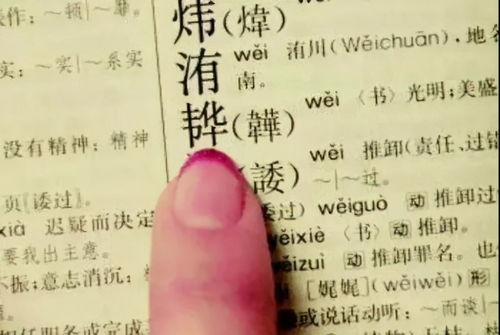 作：～顿|～靡。
实：～实|～系实
没有精神；精神
页〖诿过〗
xià 迟疑而决定
要我出主意。
不振；意志消沉：
任职务或完成
炜(煒)
洧 wěi 洧川(Wěichuān)，地名
南。
(韡) wěi 〈书〉光明；美盛
(諉) wěi 推卸(责任、过错
～|～过。
委过) wěiguò 动 推卸过
ěixiè 〈书〉动 推卸。
ěizuì 动 推卸罪名。也
[娓娓](wěiwěi) 形
或说话动听：～而谈|